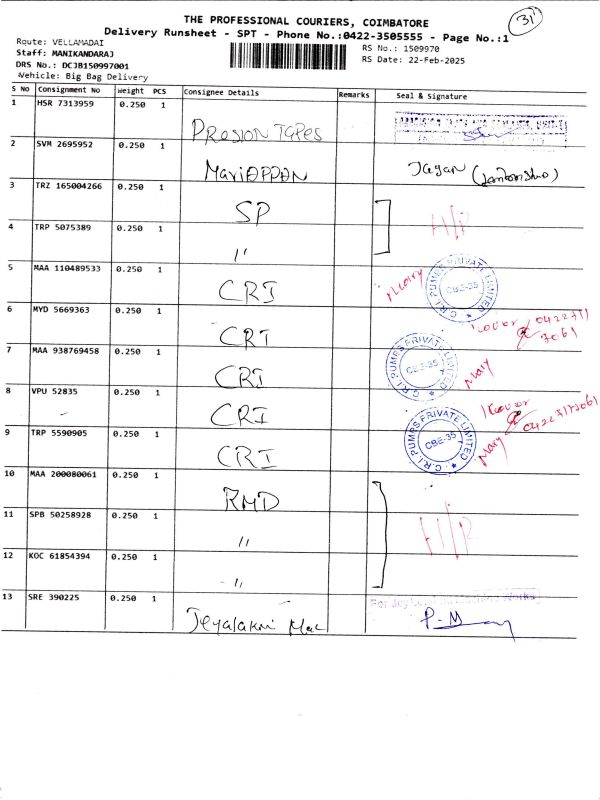 31
THE PROFESSIONAL COURIERS, COIMBATORE
Delivery Runsheet - SPT - Phone No.:0422-3505555 - Page No.:1
Route: VELLAMADAI
Staff: MANIKANDARAJ
DRS No.: DCJB150997001
Vehicle: Big Bag Delivery
RS No.: 1509970
RS Date: 22-Feb-2025
S No Consignment No Weight PCS Consignee Details Remarks Seal & Signature
1 HSR 7313959 0.250 1
2 SVM 2695952 0.250 1 Jagan
3 TRZ 165004266 0.250 1 SP H/P
4 TRP 5075389 0.250 1 "
5 MAA 110489533 0.250 1 CRI Mary
C.R.I. PUMPS PRIVATE LIMITED
CBE-35
6 MYD 5669363 0.250 1 CRI
7 MAA 938769458 0.250 1 CRI Mary
C.R.I. PUMPS PRIVATE LIMITED
CBE-35
8 VPU 52835 0.250 1 CRI
9 TRP 5590905 0.250 1 CRI Mary
C.R.I. PUMPS PRIVATE LIMITED
CBE-35
10 MAA 200080061 0.250 1 RMD
11 SPB 50258928 0.250 1 "
12 KOC 61854394 0.250 1 "
13 SRE 390225 0.250 1